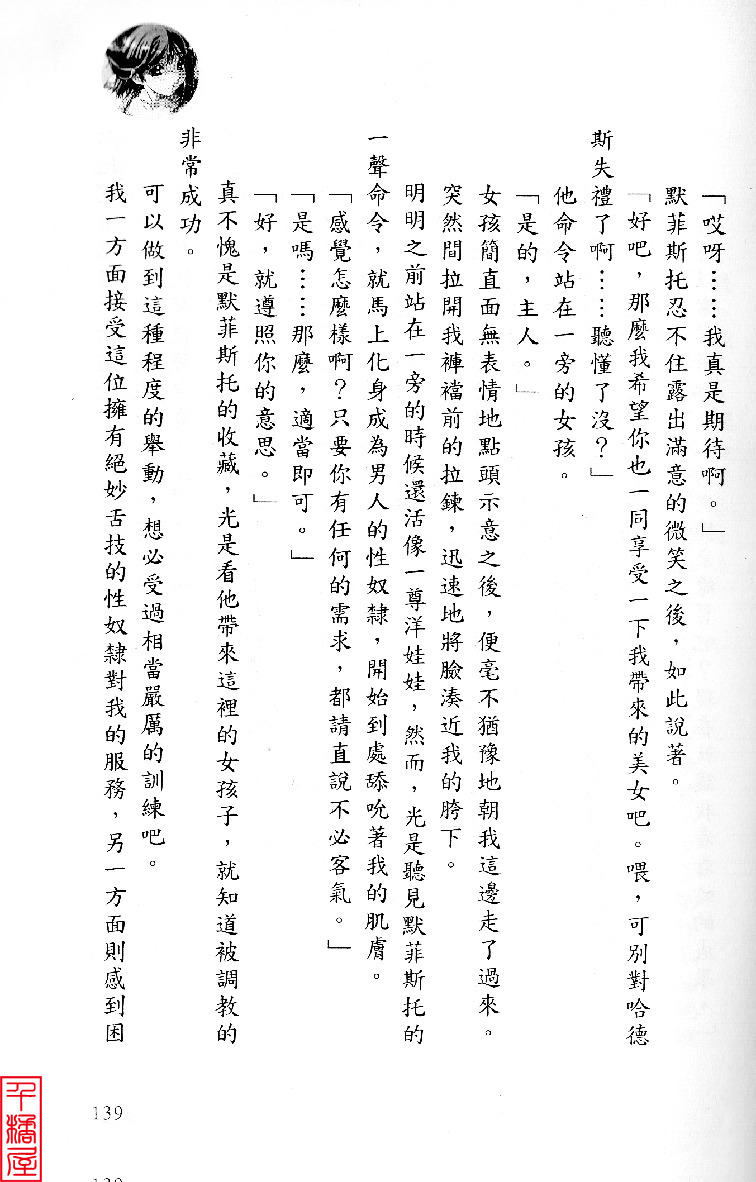 「哎呀……我真是期待啊。」
默菲斯托忍不住露出滿意的微笑之後，如此說著。
「好吧，那麼我希望你也一同享受一下我帶來的美女吧。喂，可別對哈德
斯失禮了啊……聽懂了沒？」
他命令站在一旁的女孩。
「是的，主人。」
女孩簡直面無表情地點頭示意之後，便毫不猶豫地朝我這邊走了過來。
突然間拉開我褲襠前的拉鍊，迅速地將臉湊近我的胯下。
明明之前站在一旁的時候還活像一尊洋娃娃，然而，光是聽見默菲斯托的
一聲命令，就馬上化身成為男人的性奴隸，開始到處舔吮著我的肌膚。
「感覺怎麼樣啊？只要你有任何的需求，都請直說不必客氣。」
「是嗎……那麼，適當即可。」
「好，就遵照你的意思。」
真不愧是默菲斯托的收藏，光是看他帶來這裡的女孩子，就知道被調教的
非常成功。
可以做到這種程度的舉動，想必受過相當嚴厲的訓練吧。
我一方面接受這位擁有絕妙舌技的性奴隸對我的服務，另一方面則感到困
139